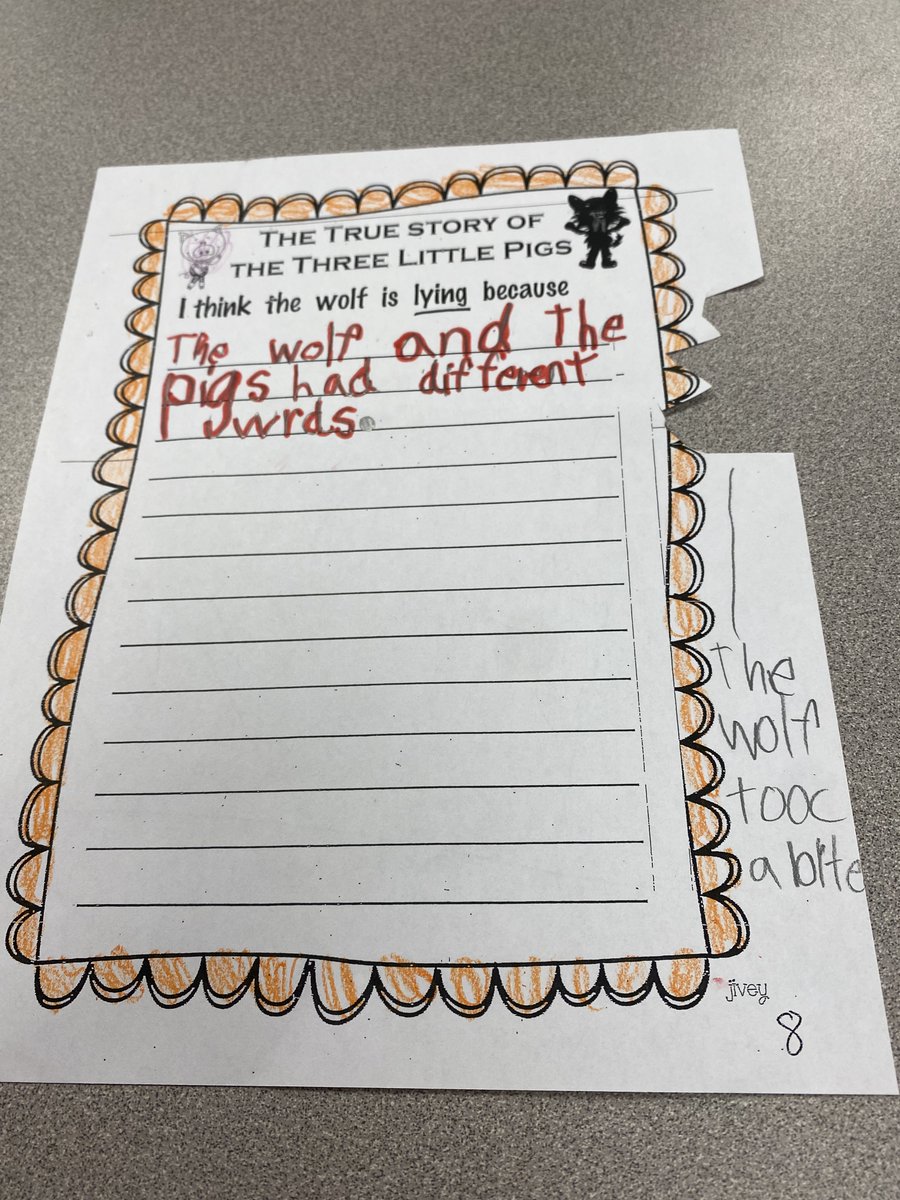 THE TRUE STORY OF
THE THREE LITTLE PIGS
I think the wolf is lying because
The wolf and The
pigs had different
wrds.
The
wolf
tooc
a bite
jivey
8